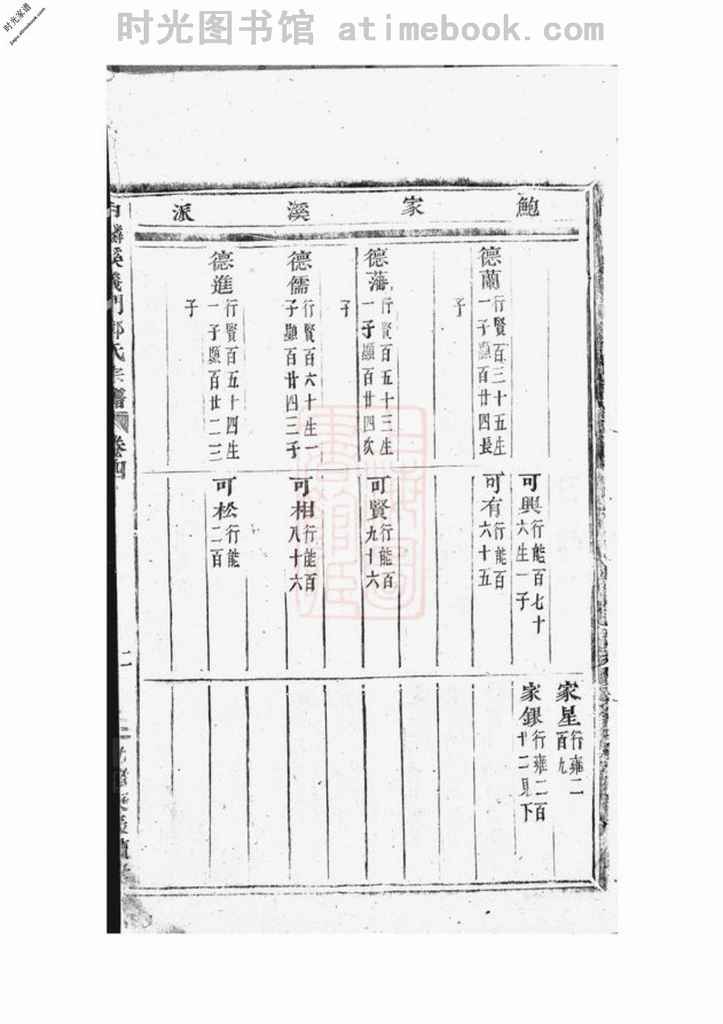 时光图书馆 atimebook.com
时光家谱
jiapu.atimebook.com
鮑家溪派
德蘭
行賢百三十五生
一子顯百廿四長
子
德藩
行賢百五十三生
一子顯百廿四次
子
德儒
行賢百六十生一
子顯百廿四三子
德進
行賢百五十四生
一子顯百廿二三
子
可興
行能百七十
六生一子
可有
行能百
六十五
可賢
行能百
九十六
可相
行能百
八十六
可松
行能
二百
家星
行雍二
百九
家銀
行雍二百
廿二見下
麟溪義門鄭氏宗譜
卷四
二